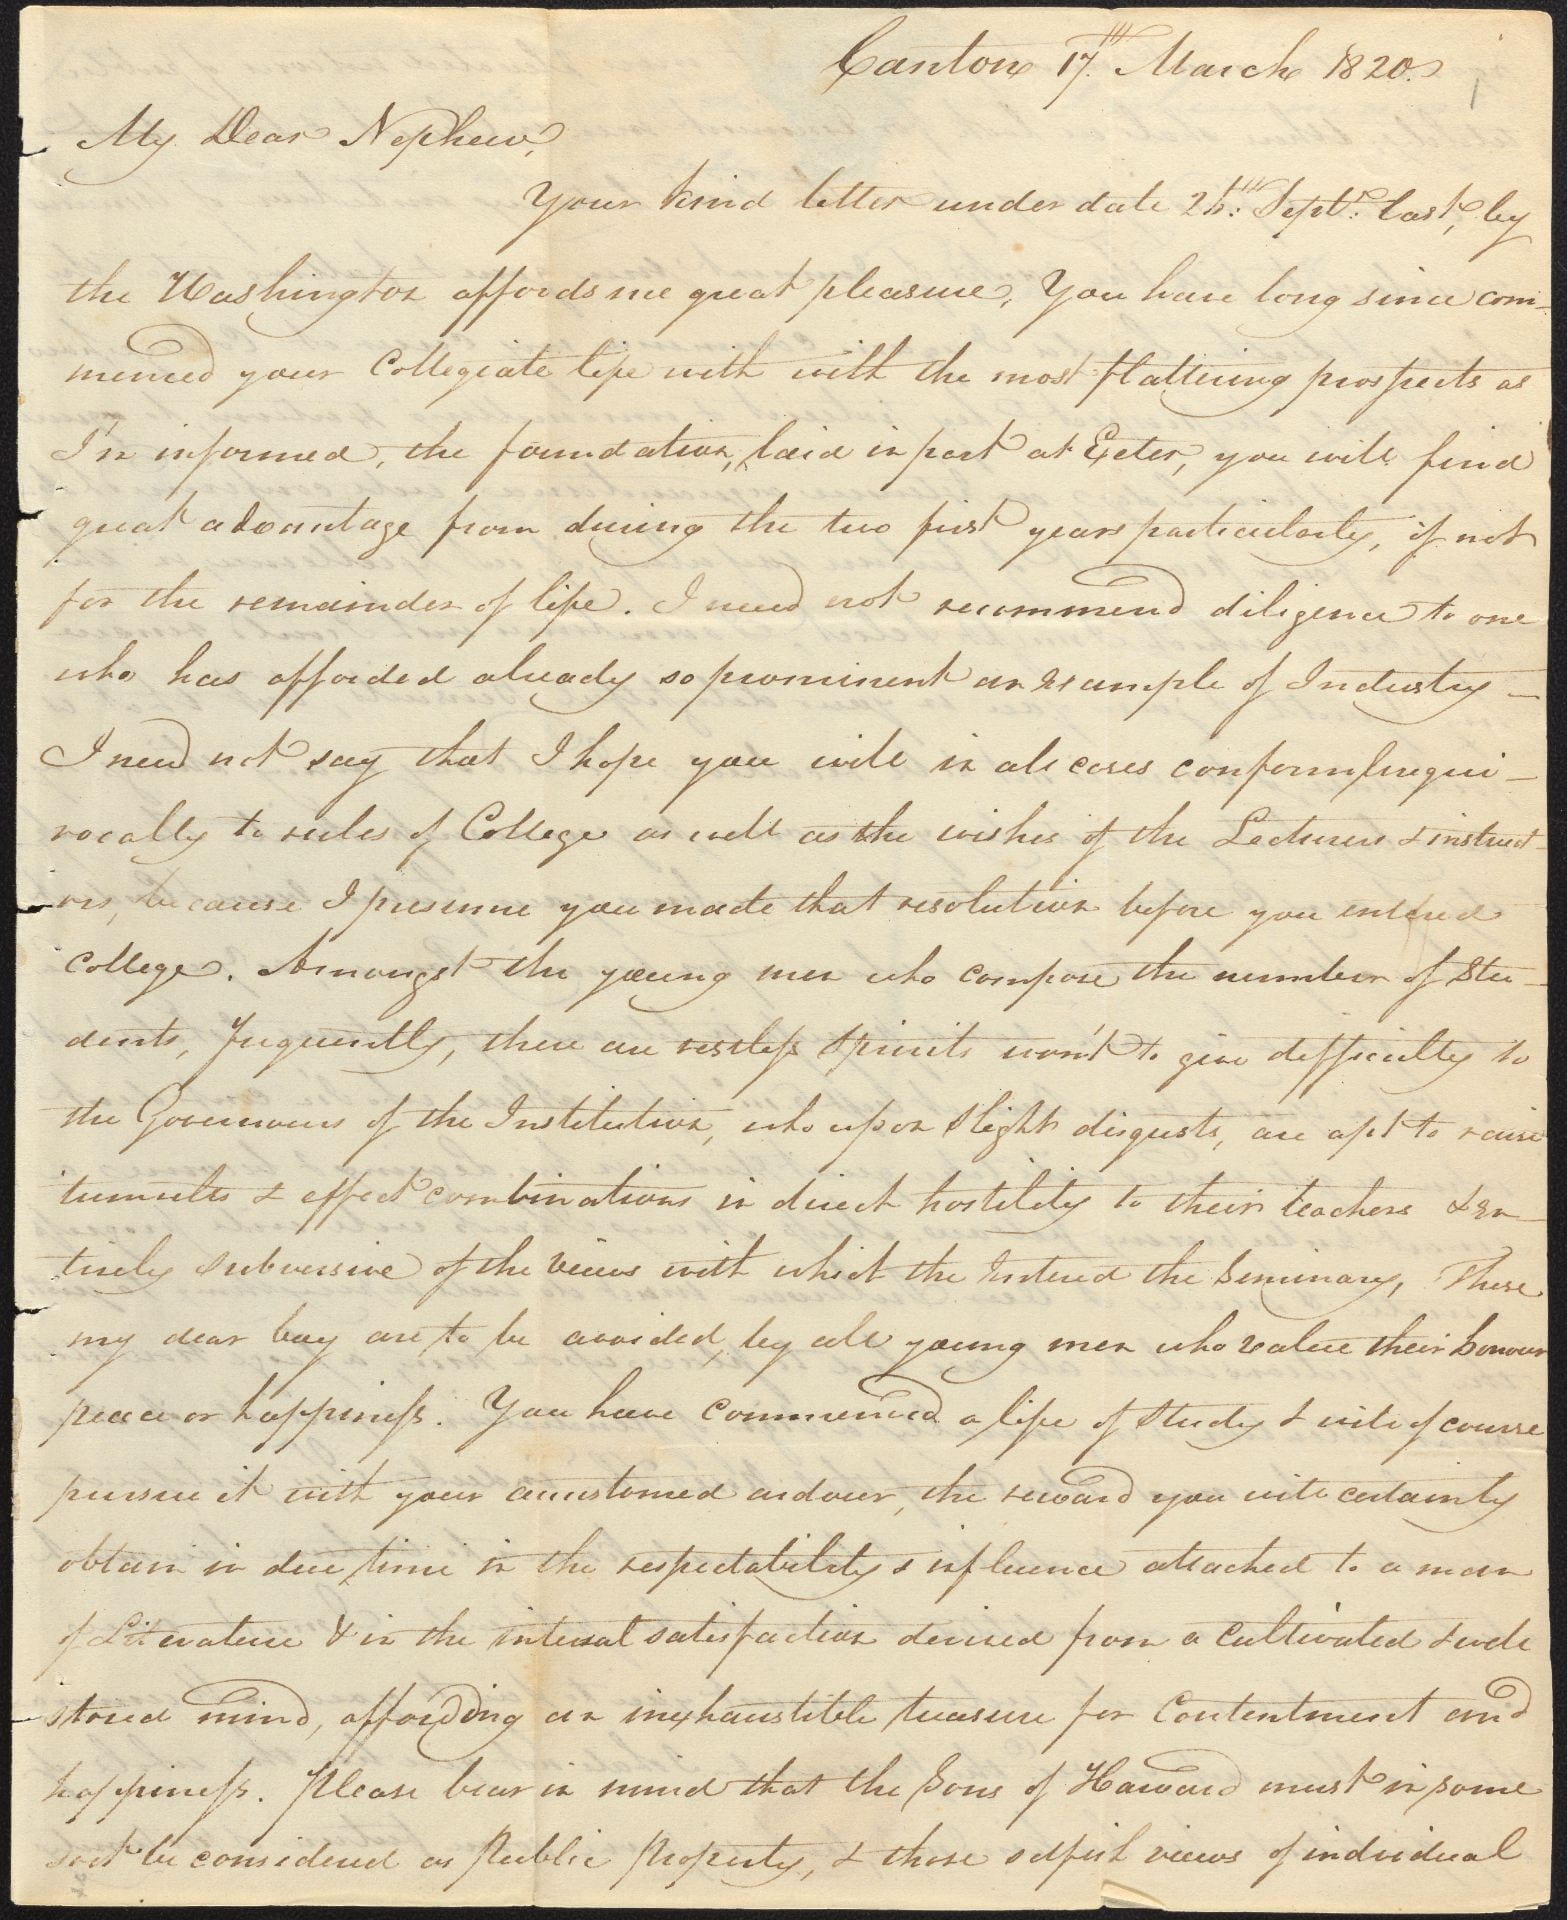 Canton 17th March 1820.
My Dear Nephew,
Your kind letter under date Septr. last, by
the Washington affords me great pleasure, You have long since com-
menced your Collegiate life with with the most flattering prospects as
I'm informed, the foundation, laid in part at Exeter, you will find
great advantage from during the two first years particularly, if not
for the remainder of life. I need not recommend diligence to one
who has afforded already so prominent an Example of Industry –
I need not say that I hope you will in all cases conform unequi-
vocally to rules of College as well as the wishes of the Lecturers & instruct-
ors, because I presume you made that resolution before you entered
College. Amongst the young men who compose the number of Stu-
dents, frequently, there are restless Spirits wont to give difficulty to
the Governours of the Institution, who upon slight disgusts, are apt to raise
tumults & effect combinations in direct hostility to their teachers & En-
tirely subversive of the views with which the Entered the Seminary, These
my dear boy are to be avoided, by all young men who value their honour
peace or happiness. You have commenced a life of Study & will of course
pursue it with your accustomed ardour, the reward you will certainly
obtain in due time in the respectability & influence attached to a man
of Literature & in the internal satisfaction derived from a cultivated & well
stored mind, affording an inexhaustible treasure for Contentment and
happiness. Please bear in mind that the Sons of Harvard must in some
sort be considered as Public Property, & those selfish views of individual